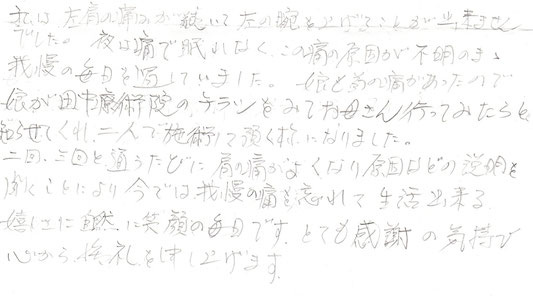 私は、左肩の痛みが続いて左の腕を上げることが出来ません
でした。夜は痛で眠れなく、この痛の原因が不明のまゝ
我慢の毎日を過していました。娘も首の痛があったので
娘が田中療術院のチラシをみてお母さん行ってみたらと
知らせてくれ、二人で施術して頂く様になりました。
二回、三回と通うたびに肩の痛がよくなり原因などの説明を
聞くことにより今では我慢の痛を忘れて生活出来る
嬉しさに自然に笑顔の毎日です。とても感謝の気持び
心から御礼を申し上げます。